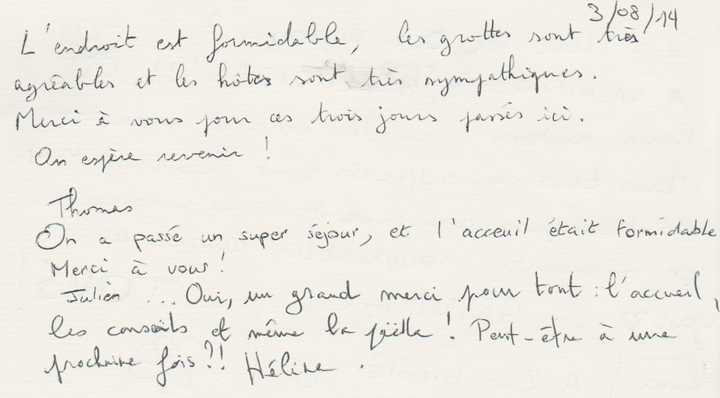 3/08/14
L'endroit est formidable, les grottes sont très
agréables et les hôtes sont très sympathiques.
Merci à vous pour ces trois jours passés ici.
On espère revenir !
Thomas
On a passé un super séjour, et l'acceuil était formidable
Merci à vous !
Julien ... Oui, un grand merci pour tout : l'accueil,
les conseils et même la païella ! Peut-être à une
prochaine fois ?! Hélène.